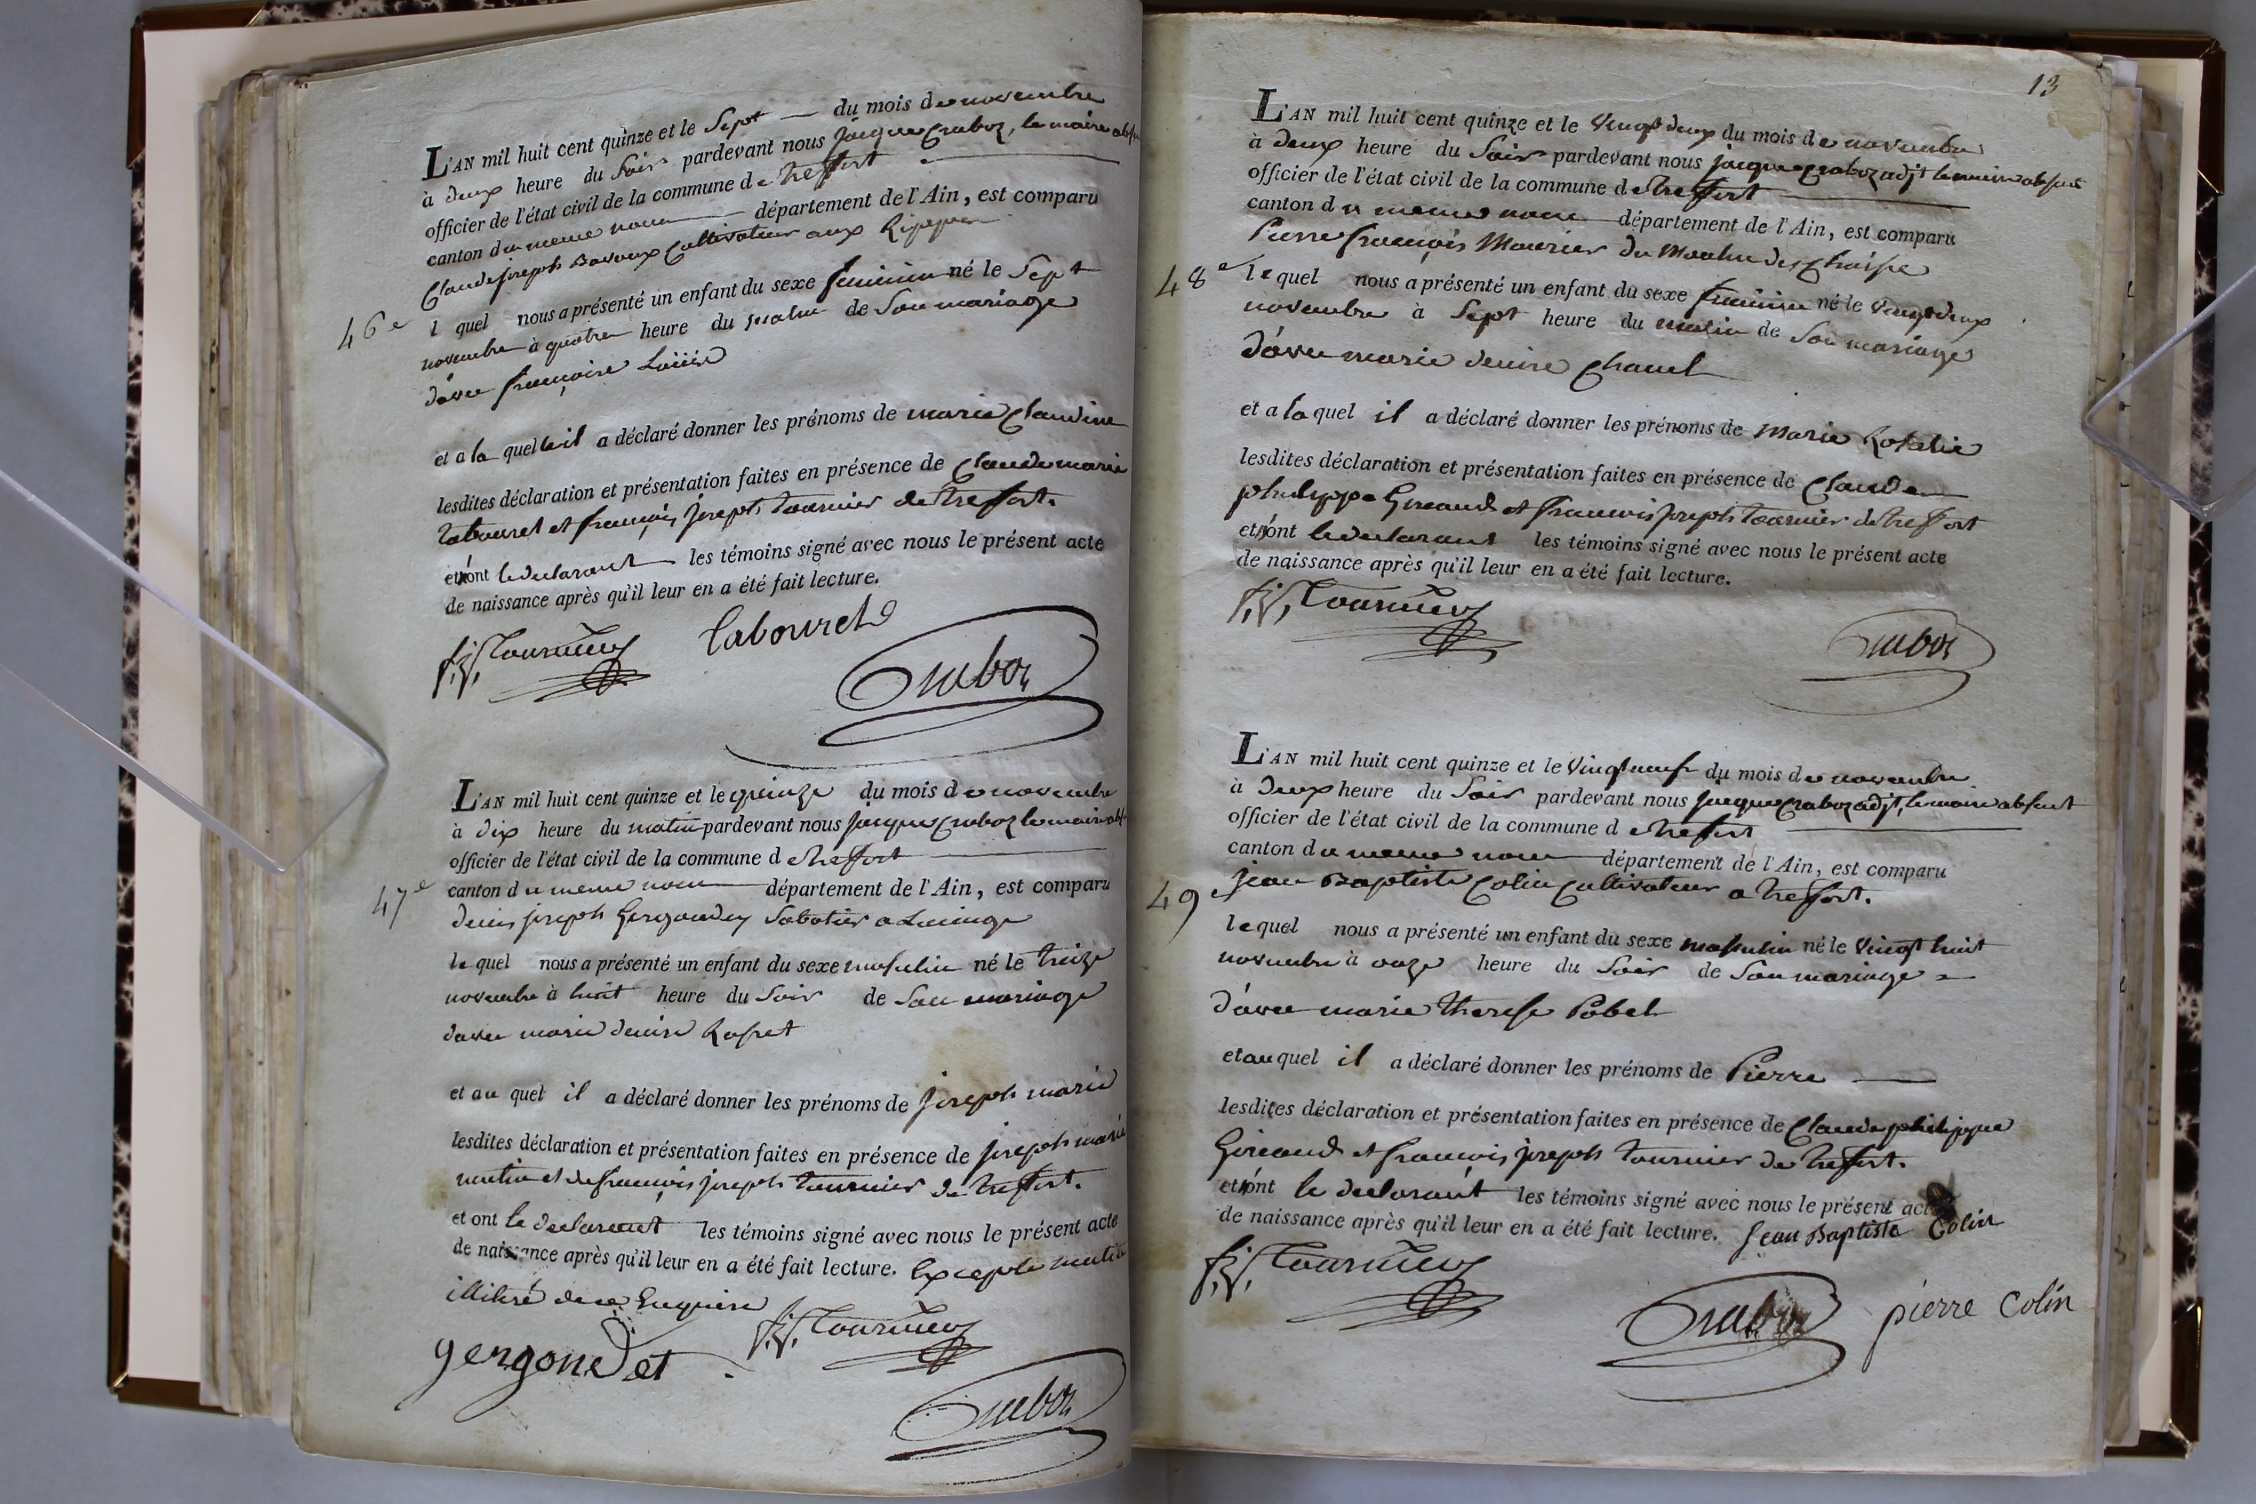 L'AN mil huit cent quinze et le Sept du mois de novembre
à deux heure du Soir pardevant nous jacque Craboz, le maire
officier de l'état civil de la commune de treffort
canton du meme nom département de l'Ain, est comparu
Claude joseph Cultivateur aux
46e
l quel nous a présenté un enfant du sexe feminin né le Sept
novembre à quatre heure du matin de Son mariage
d'avec françoise
et a la quelle il a déclaré donner les prénoms de marie Claudine
lesdites déclaration et présentation faites en présence de Claude marie
tabouret et françois joseph tournier de treffort.
et ont le declarant les témoins signé avec nous le présent acte
de naissance après qu'il leur en a été fait lecture.
f. j. Tournier tabouret
Craboz
L'AN mil huit cent quinze et le quinze du mois de novembre
à dix heure du matin pardevant nous jacque Craboz le maire
officier de l'état civil de la commune de treffort
47e
canton du meme nom département de l'Ain, est comparu
denis joseph Sabotier a
le quel nous a présenté un enfant du sexe masculin né le treize
novembre à huit heure du Soir de Son mariage
davec marie denise
et au quel il a déclaré donner les prénoms de joseph marie
lesdites déclaration et présentation faites en présence de joseph marie
et de françois joseph tournier de treffort.
et ont le declarant les témoins signé avec nous le présent acte
de naissance après qu'il leur en a été fait lecture. Excepté
illitéré de ce Enquis
gergondet f. j. Tournier
Craboz
13
L'AN mil huit cent quinze et le Vingt deux du mois de novembre
à deux heure du Soir pardevant nous jacque Craboz adjt le maire absent
officier de l'état civil de la commune de treffort
canton du meme nom département de l'Ain, est comparu
Pierre françois du Moulin des
48e
le quel nous a présenté un enfant du sexe feminin né le Vingt deux
novembre à Sept heure du matin de Son mariage
d'avec marie denise
et a la quel il a déclaré donner les prénoms de Marie Rosalie
lesdites déclaration et présentation faites en présence de Claude
philippe Gireaud et francois joseph tournier de treffort
et ont le declarant les témoins signé avec nous le présent acte
de naissance après qu'il leur en a été fait lecture.
f. j. Tournier
Craboz
L'AN mil huit cent quinze et le Vingt neuf du mois de novembre
à deux heure du Soir pardevant nous jacque Craboz adjt, le maire absent
officier de l'état civil de la commune de treffort
canton du meme nom département de l'Ain, est comparu
49
jean Baptiste Colin Cultivateur a treffort.
le quel nous a présenté un enfant du sexe masculin né le Vingt huit
novembre à onze heure du Soir de Son mariage
d'avec marie therese Pobel
et au quel il a déclaré donner les prénoms de Pierre
lesdites déclaration et présentation faites en présence de Claude philippe
Gireaud et francois joseph tournier de treffort.
et ont le declarant les témoins signé avec nous le présent acte
de naissance après qu'il leur en a été fait lecture. Jean Baptiste Colin
f. j. Tournier
Craboz pierre Colin